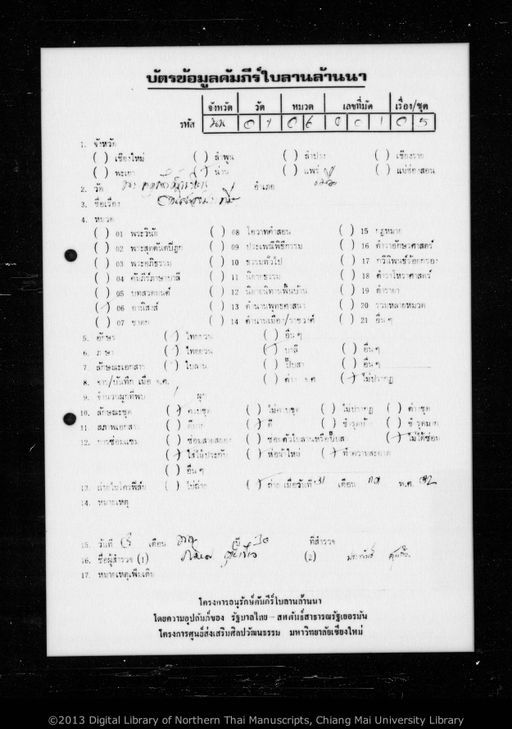 บัตรข้อมูลคัมภีร์ใบลานล้านนา
จังหวัด วัด หมวด เลขที่มัด เรื่อง/ชุด
รหัส นน 01 06 001 05
1. จังหวัด
( ) เชียงใหม่ ( ) ลำพูน ( ) ลำปาง ( ) เชียงราย
( ) พะเยา (/) น่าน ( ) แพร่ ( ) แม่ฮ่องสอน
2. วัด อำเภอ เมือง
3. ชื่อเรื่อง
4. หมวด
( ) 01 พระวินัย ( ) 08 โอวาทคำสอน ( ) 15 กฎหมาย
( ) 02 พระสุตตันตปิฎก ( ) 09 ประเพณีพิธีกรรม ( ) 16 ตำราอักษรศาสตร์
( ) 03 พระอภิธรรม ( ) 10 ธรรมทั่วไป ( ) 17 กวีนิพนธ์ร้อยกรอง
( ) 04 คัมภีร์ภาษาบาลี ( ) 11 นิยายธรรม ( ) 18 ตำราโหราศาสตร์
( ) 05 บทสวดมนต์ ( ) 12 นิยายนิทานพื้นบ้าน ( ) 19 ตำรายา
(/) 06 อานิสงส์ ( ) 13 ตำนานพุทธศาสนา ( ) 20 รวมหลายหมวด
( ) 07 ชาดก ( ) 14 ตำนานเมือง/ราชวงศ์ ( ) 21 อื่นๆ
5. อักษร (/) ไทยยวน ( ) อื่นๆ
6. ภาษา (/) ไทยยวน (/) บาลี ( ) อื่นๆ
7. ลักษณะเอกสาร (/) ใบลาน ( ) ปั๊บสา ( ) อื่นๆ
8. จาร/บันทึก เมื่อ จ.ศ. ( ) ค่าง จ.ศ (/) ไม่ปรากฏ
9. จำนวนผูกที่พบ 1 ผูก
10. ลักษณะชุด (/) ครบชุด ( ) ไม่ครบชุด ( ) ไม่ปรากฏ ( ) ต่างชุด
11. สภาพเอกสาร ( ) ดีมาก (/) ดี ( ) ชำรุด ( ) ชำรุดมาก
12. การซ่อมแซม ( ) ซ่อมสายสยอง ( ) ซ่อมตัวใบลานหรือปั๊บสา (/) ไม่ได้ซ่อม
(/) ใส่ไม้ประกับ ( ) ห่อผ้าใหม่ (/) ทำความสะอาด
( ) อื่นๆ
13. ถ่ายไมโครฟิล์ม ( ) ไม่ถ่าย (/) ถ่าย เมื่อวันที่ 31 เดือน พ.ศ. 32
14. หมายเหตุ
15. วันที่ เดือน ปี 30 ที่สำรวจ
16. ชื่อผู้สำรวจ (1) (2)
17. หมายเหตุเพิ่มเติม
โครงการอนุรักษ์คัมภีร์ใบลานล้านนา
โดยความอุปถัมภ์ของ รัฐบาลไทย - สหพันธ์สาธารณรัฐเยอรมัน
โครงการศูนย์ส่งเสริมศิลปวัฒนธรรม มหาวิทยาลัยเชียงใหม่
©2013 Digital Library of Northern Thai Manuscripts, Chiang Mai University Library